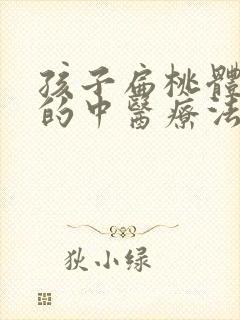 孩子扁桃體
的中醫療法
狄小绿